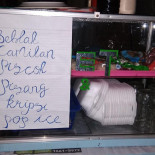 Seblak
Camilan
Pscok
Pisang
krispi
pop ice